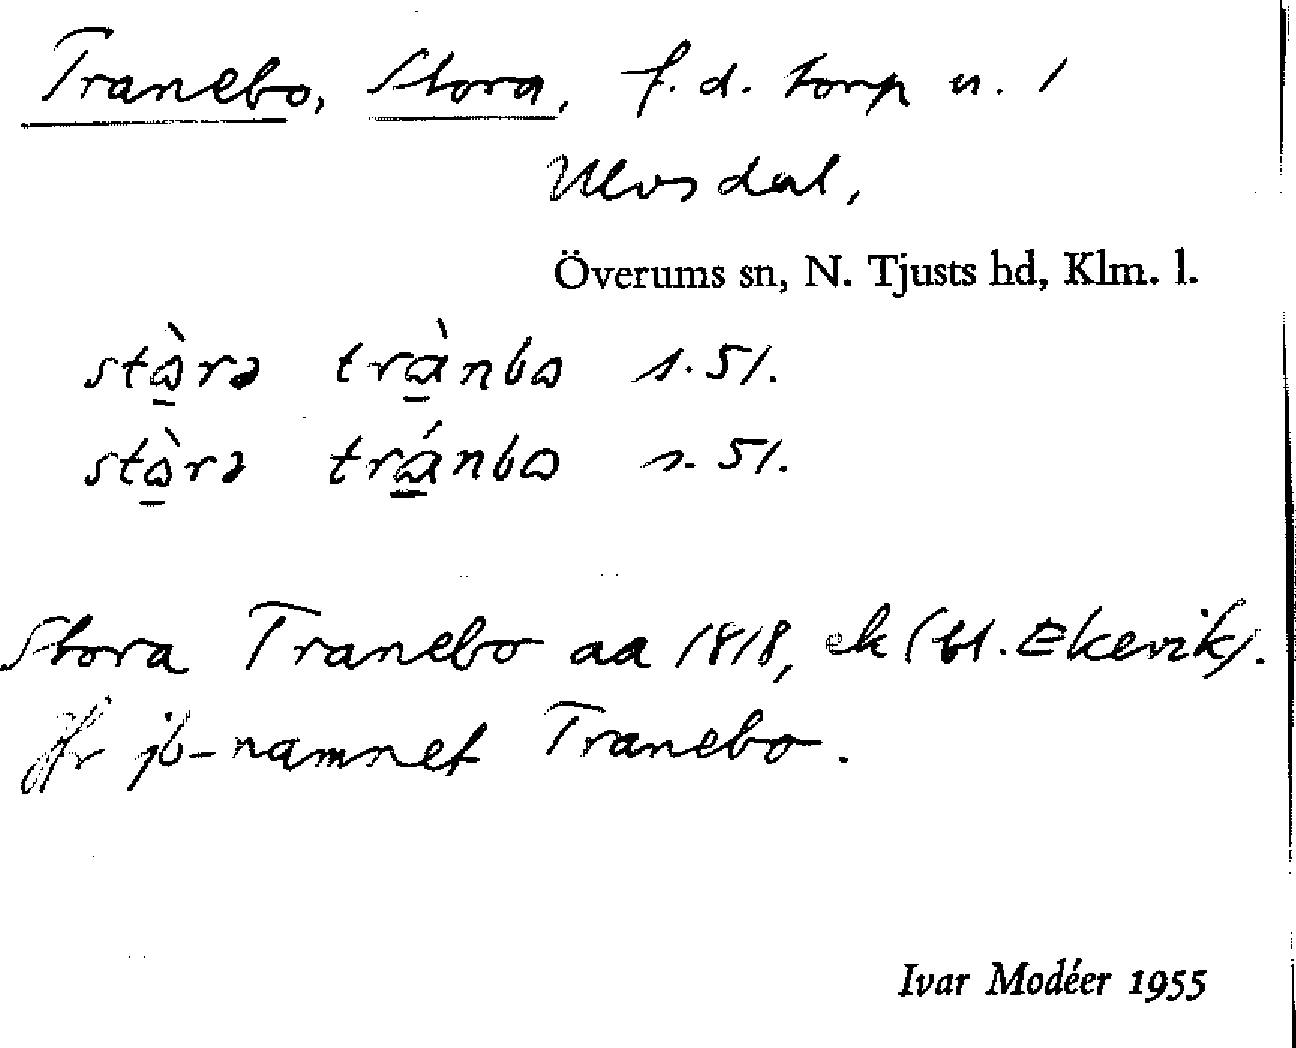 Tranebo, Stora, f.d. torp u. 1
Ulvsdal,
Överums sn, N. Tjusts hd, Klm. l.
stɷ̀rə trɑ̀nbɷ s. 51.
stɷ̀rə trɑ́nbɷ s. 51.
Stora Tranebo aa 1818, ek (bl. Ekevik).
Jfr jb-namnet Tranebo.
Ivar Modéer 1955